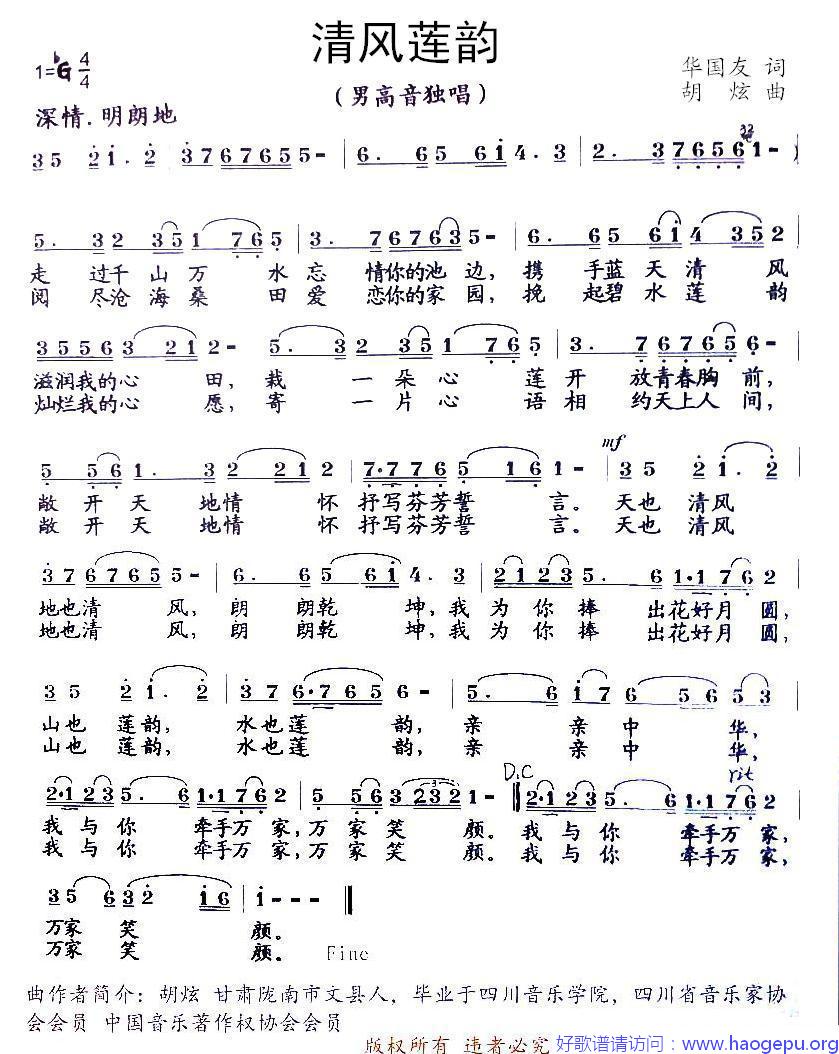 清风莲韵
1=♭G 4/4
（男高音独唱）
华国友 词
胡 炫 曲
深情.明朗地
35 21.2 3767655- | 6. 65 561 4.3 | 2. 376561- )
5. 32 351 765 | 3. 767635- | 6. 65 614 352 |
走 过千 山万 水忘 情你的池 边，携 手蓝 天清 风
阅 尽沧 海桑 田爱 恋你的家 园，挽 起碧 水莲 韵
35563 212- | 5. 32 351 765 | 3. 767656- |
滋润我的心 田，栽 一 朵心 莲开 放青春胸 前，
灿烂我的心 愿，寄 一 片心 语相 约天上人 间，
mf
5 561. 32 2212 | 7·7765 161- | 35 21.2 |
敞 开天 地情 怀 抒写芬芳誓 言。天也 清风
敞 开天 地情 怀 抒写芬芳誓 言。天也 清风
3767655- | 6. 65 614.3 | 21235. 61·1762 |
地也清 风，朗 朗乾 坤，我为你捧 出花好月 圆，
地也清 风，朗 朗乾 坤，我为你捧 出花好月 圆，
35 21.2 | 376·7656- | 5. 6176 5653 |
山也 莲韵， 水也莲 韵，亲 亲中 华，
山也 莲韵， 水也莲 韵，亲 亲中 华，
D.C
rit
2·1235. 61·1762 | 5 563 2321- ‖ 2·1235. 61·1762 |
我与你 牵手万 家，万家笑 颜。我与你 牵手万 家，
我与你 牵手万 家，万家笑 颜。我与你 牵手万 家，
35 632 16 | 1--- ‖
万家 笑 颜。
万家 笑 颜。 Fine
曲作者简介：胡炫 甘肃陇南市文县人，毕业于四川音乐学院，四川省音乐家协
会会员 中国音乐著作权协会会员
版权所有 违者必究 好歌谱请访问：www.haogepu.org